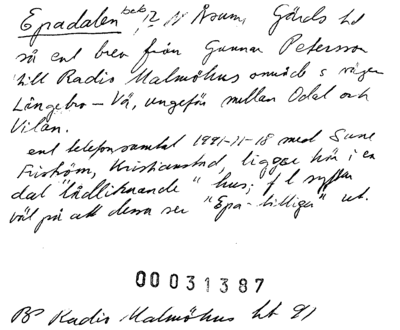 Epadalen beb, N Åsum, Gärds hd
så enl brev från Gunnar Petersson
till Radio Malmöhus område s vägen
Långebro – Vä, ungefär mellan Odal och
Vilan.
enl telefonsamtal 1991-11-18 med Sune
Friström, Kristianstad, ligger här i en
dal "lådliknande" hus; f l syftar
väl på att dessa ser "Epa-billiga" ut.
00031387
BP Radio Malmöhus ht 91